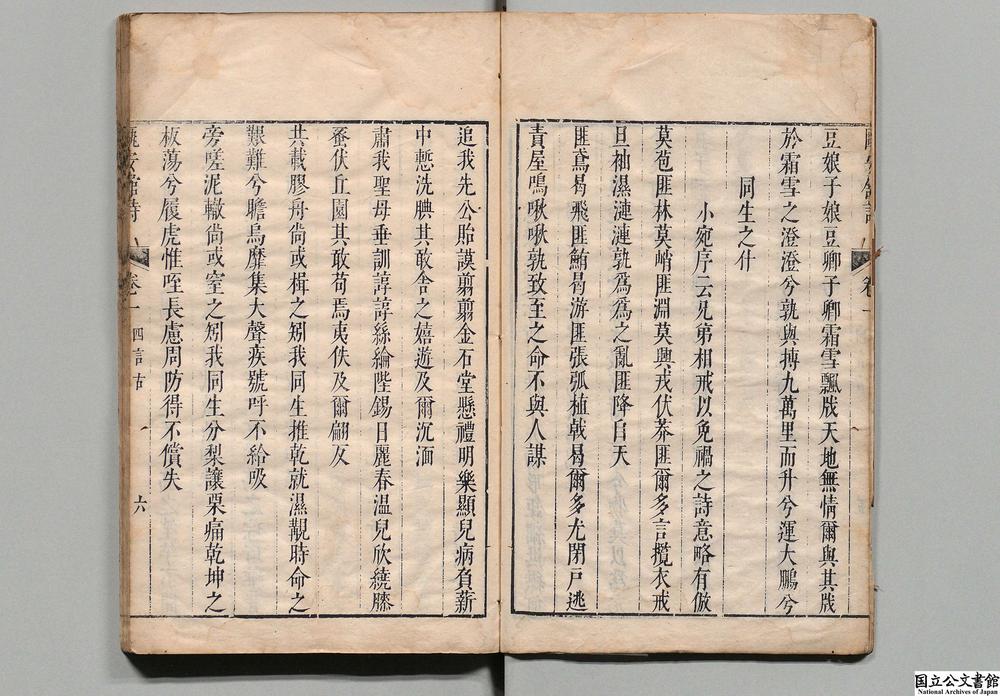 豆娘子娘豆卿子卿霜雪飄戕天地無情爾與其戕
於霜雪之澄澄兮孰與摶九萬里而升兮運大鵬兮
同生之什
小宛序云兄弟相戒以免禍之詩意略有倣
莫苞匪林莫峭匪淵莫興戎伏莽匪爾多言攬衣戒
旦袖濕漣漣孰爲爲之亂匪降自天
匪鳶曷飛匪鮪曷游匪張弧植戟曷爾多尤閉戸逃
責屋鳴啾啾孰致至之命不與人謀
追我先公貽謨翦翦金石堂懸禮明樂顯兒病負薪
中慙洗腆其敢舍之嬉遊及爾沉湎
肅我聖母垂訓諄諄絲綸陛錫日麗春溫兒欣繞膝
蚤伏丘園其敢苟焉夷佚及爾翩反
共載膠舟尙或楫之矧我同生推乾就濕覯時命之
艱難兮瞻烏靡集大聲疾號呼不給吸
旁嗟泥轍尙或窒之矧我同生分梨讓栗痛乾坤之
板蕩兮履虎惟咥長慮周防得不償失
館詩
卷一
四言古
六